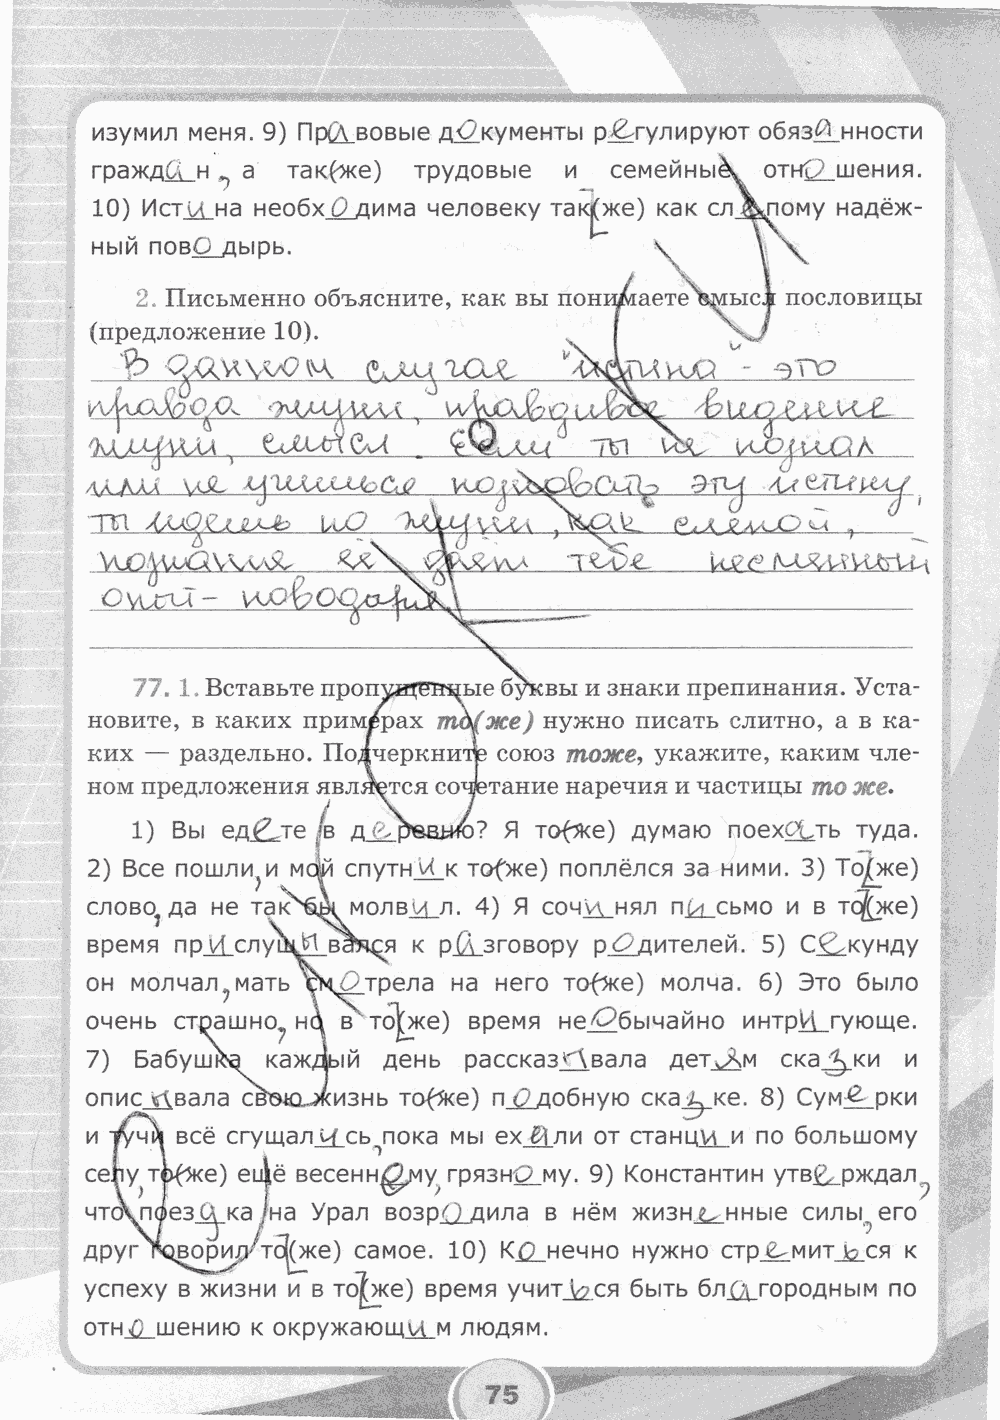 изумил меня. 9) Правовые документы регулируют обязанности
граждан, а так(же) трудовые и семейные отношения.
10) Истина необходима человеку так(же) как слепому надёж-
ный поводырь.
2. Письменно объясните, как вы понимаете смысл пословицы
(предложение 10).
В данном случае "истина" - это
правда жизни, правдивое видение
жизни, смысл. Если ты не познал
или не учишься познавать эту истину,
ты идешь по жизни, как слепой,
познание её даёт тебе несменный
опыт - поводыря.
77. 1. Вставьте пропущенные буквы и знаки препинания. Уста-
новите, в каких примерах то(же) нужно писать слитно, а в ка-
ких — раздельно. Подчеркните союз тоже, укажите, каким чле-
ном предложения является сочетание наречия и частицы то же.
1) Вы едете в деревню? Я то(же) думаю поехать туда.
2) Все пошли, и мой спутник то(же) поплёлся за ними. 3) То(же)
слово, да не так бы молвил. 4) Я сочинял письмо и в то(же)
время прислушывался к разговору родителей. 5) Секунду
он молчал, мать смотрела на него то(же) молча. 6) Это было
очень страшно, но в то(же) время необычайно интригующе.
7) Бабушка каждый день рассказывала детям сказки и
описывала свою жизнь то(же) подобную сказке. 8) Сумерки
и тучи всё сгущались, пока мы ехали от станции по большому
селу, то(же) ещё весеннему, грязному. 9) Константин утверждал,
что поездка на Урал возродила в нём жизненные силы, его
друг говорил то(же) самое. 10) Конечно нужно стремиться к
успеху в жизни и в то(же) время учиться быть благородным по
отношению к окружающим людям.
75
еиркоККИ